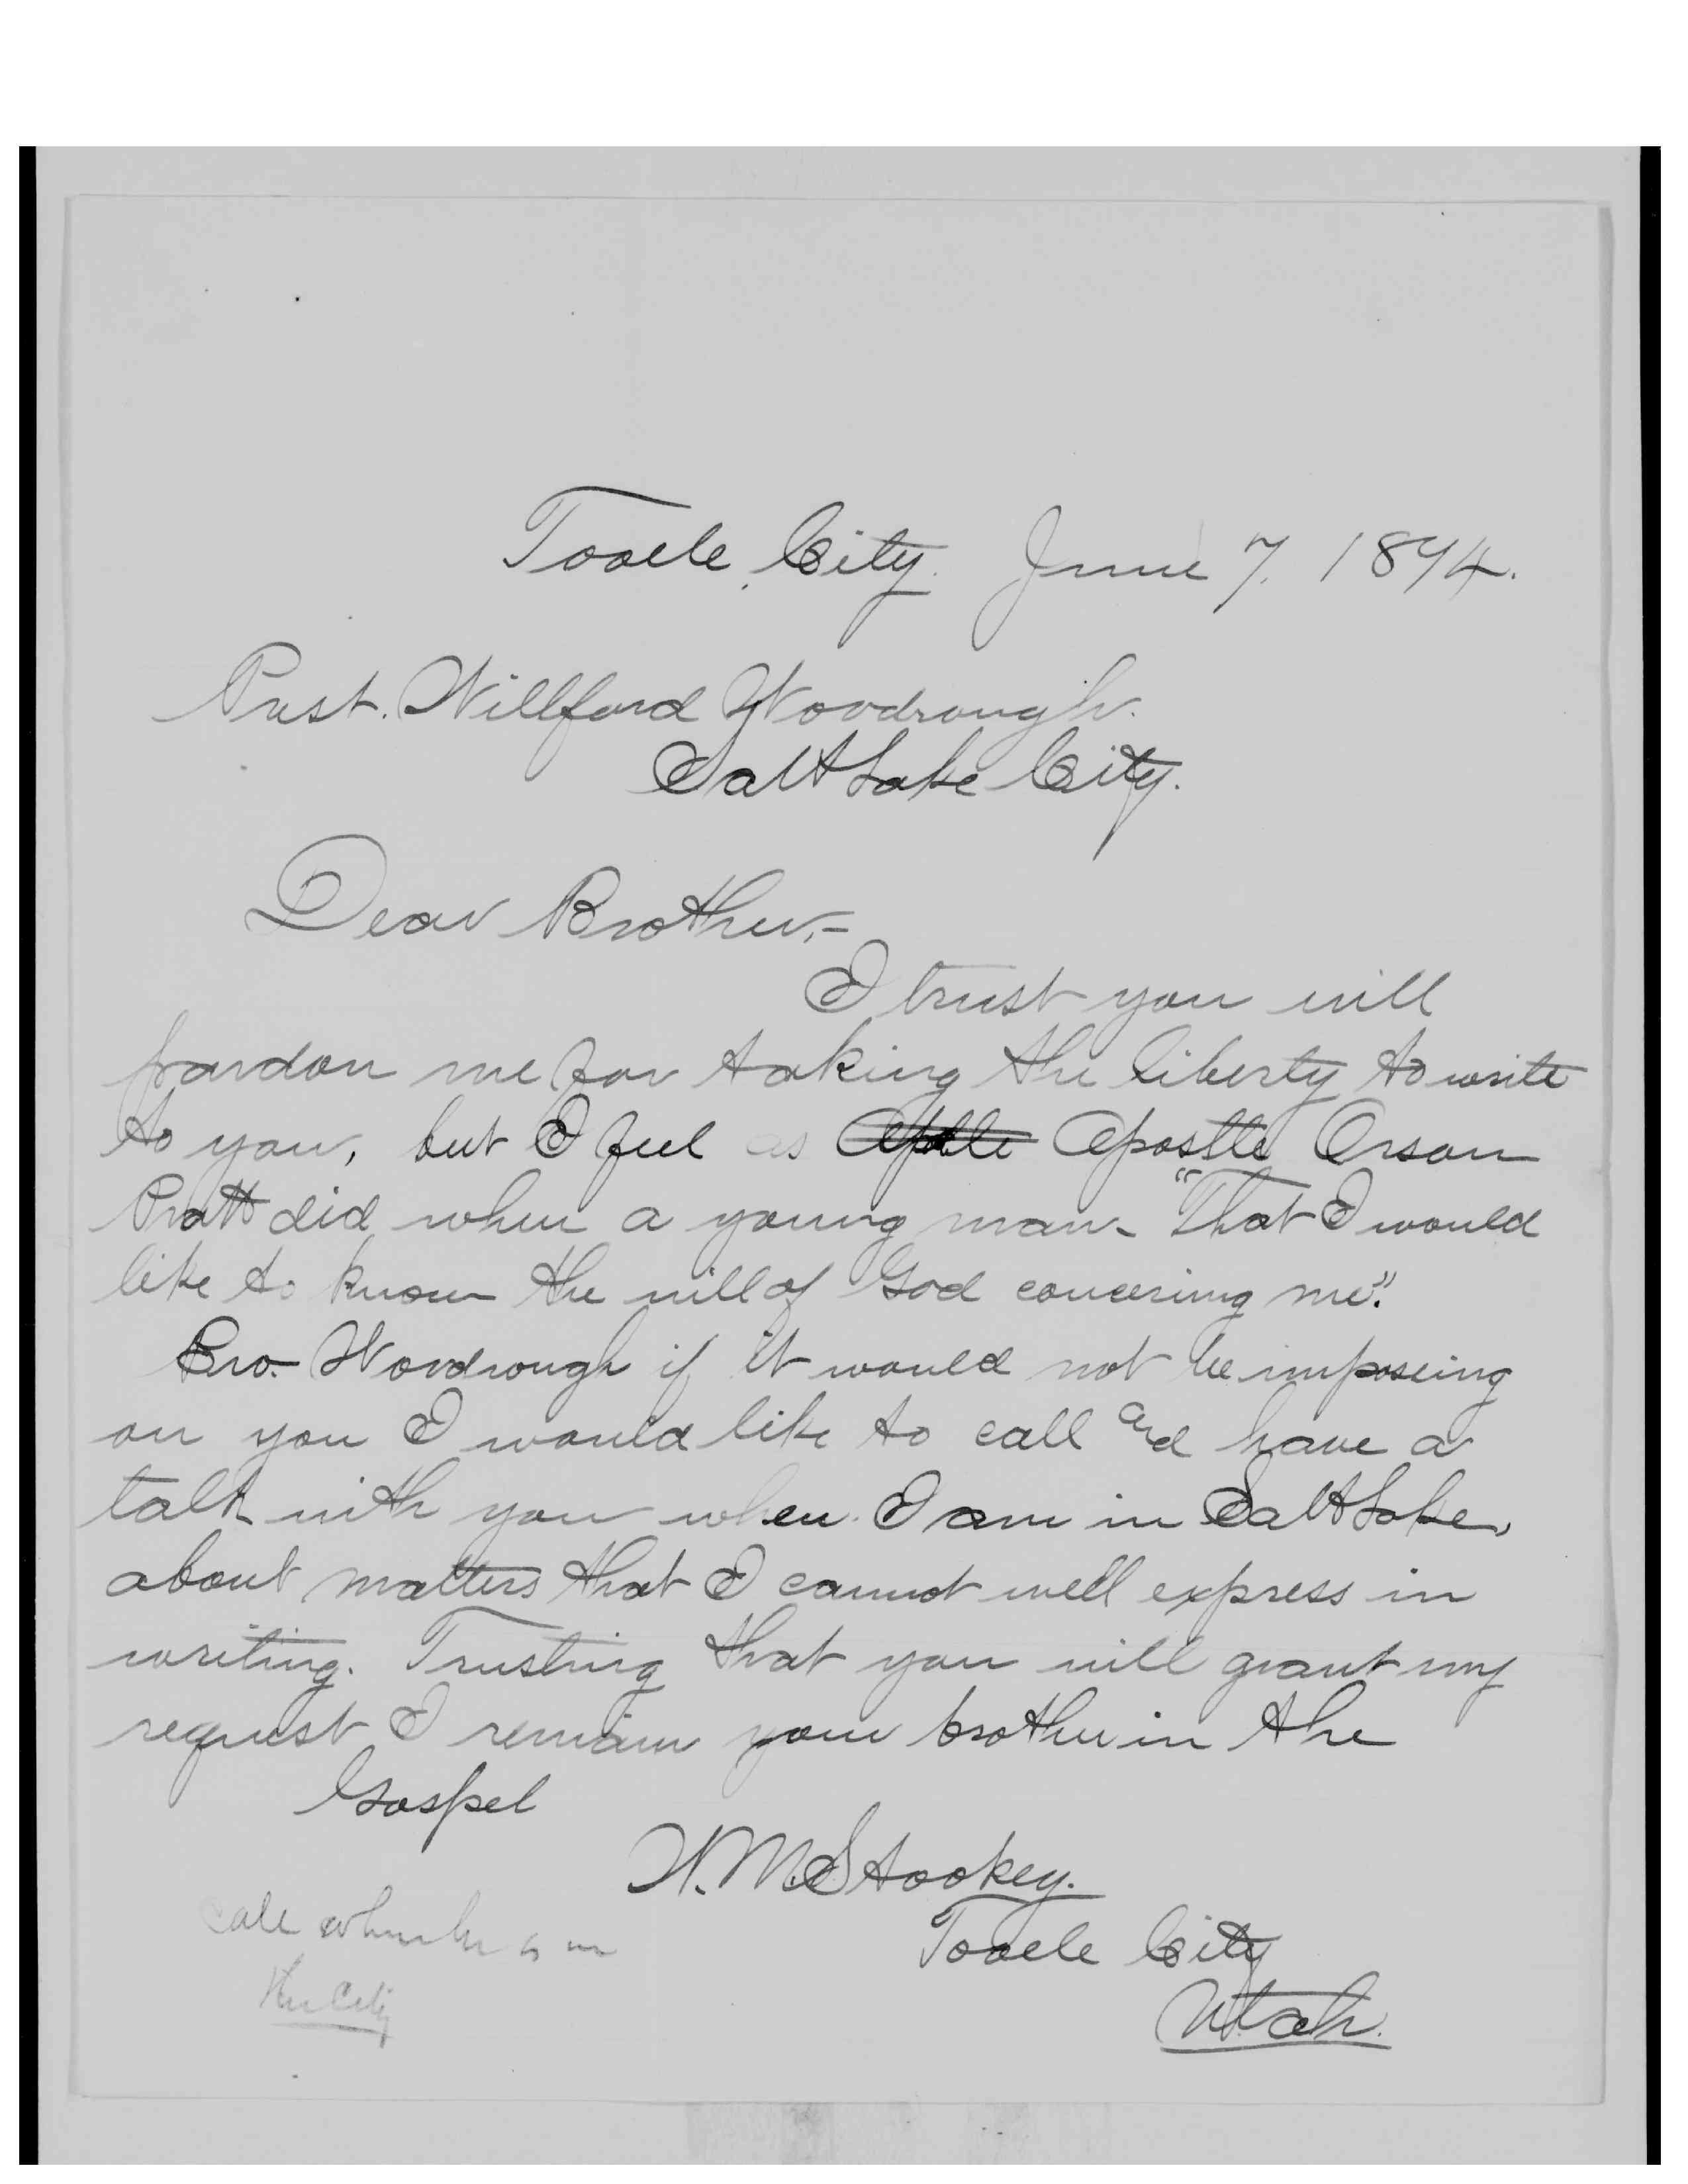 Tooele City. June 7. 1894.
Prest. Willford Woodrough.
Salt Lake City.
Dear Brother,-
I trust you will
pardon me for taking the liberty to write
to you, but I feel as Apostle Orson
Pratt did when a young man- "That I would
like to know the will of God concering me".
Bro. Woodrough if it would not be imposeing
on you I would like to call and have a
talk with you when I am in Salt Lake,
about matters that I cannot well express in
writing. Trusting that you will grant my
request I remain your brother in the
Gospel
W. M. Stookey.
Tooele City
Utah.
call when he is in
the City